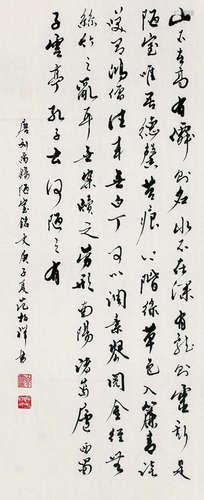 山不在高有僊則名水不在深有龍則靈斯是
陋室唯吾德馨苔痕上階綠草色入簾青談
笑有鴻儒往來無白丁可以調素琴閱金經無
絲竹之亂耳無案牘之勞形南陽諸葛廬西蜀
子雲亭孔子云何陋之有
唐劉禹錫陋室銘庚子夏范祥書